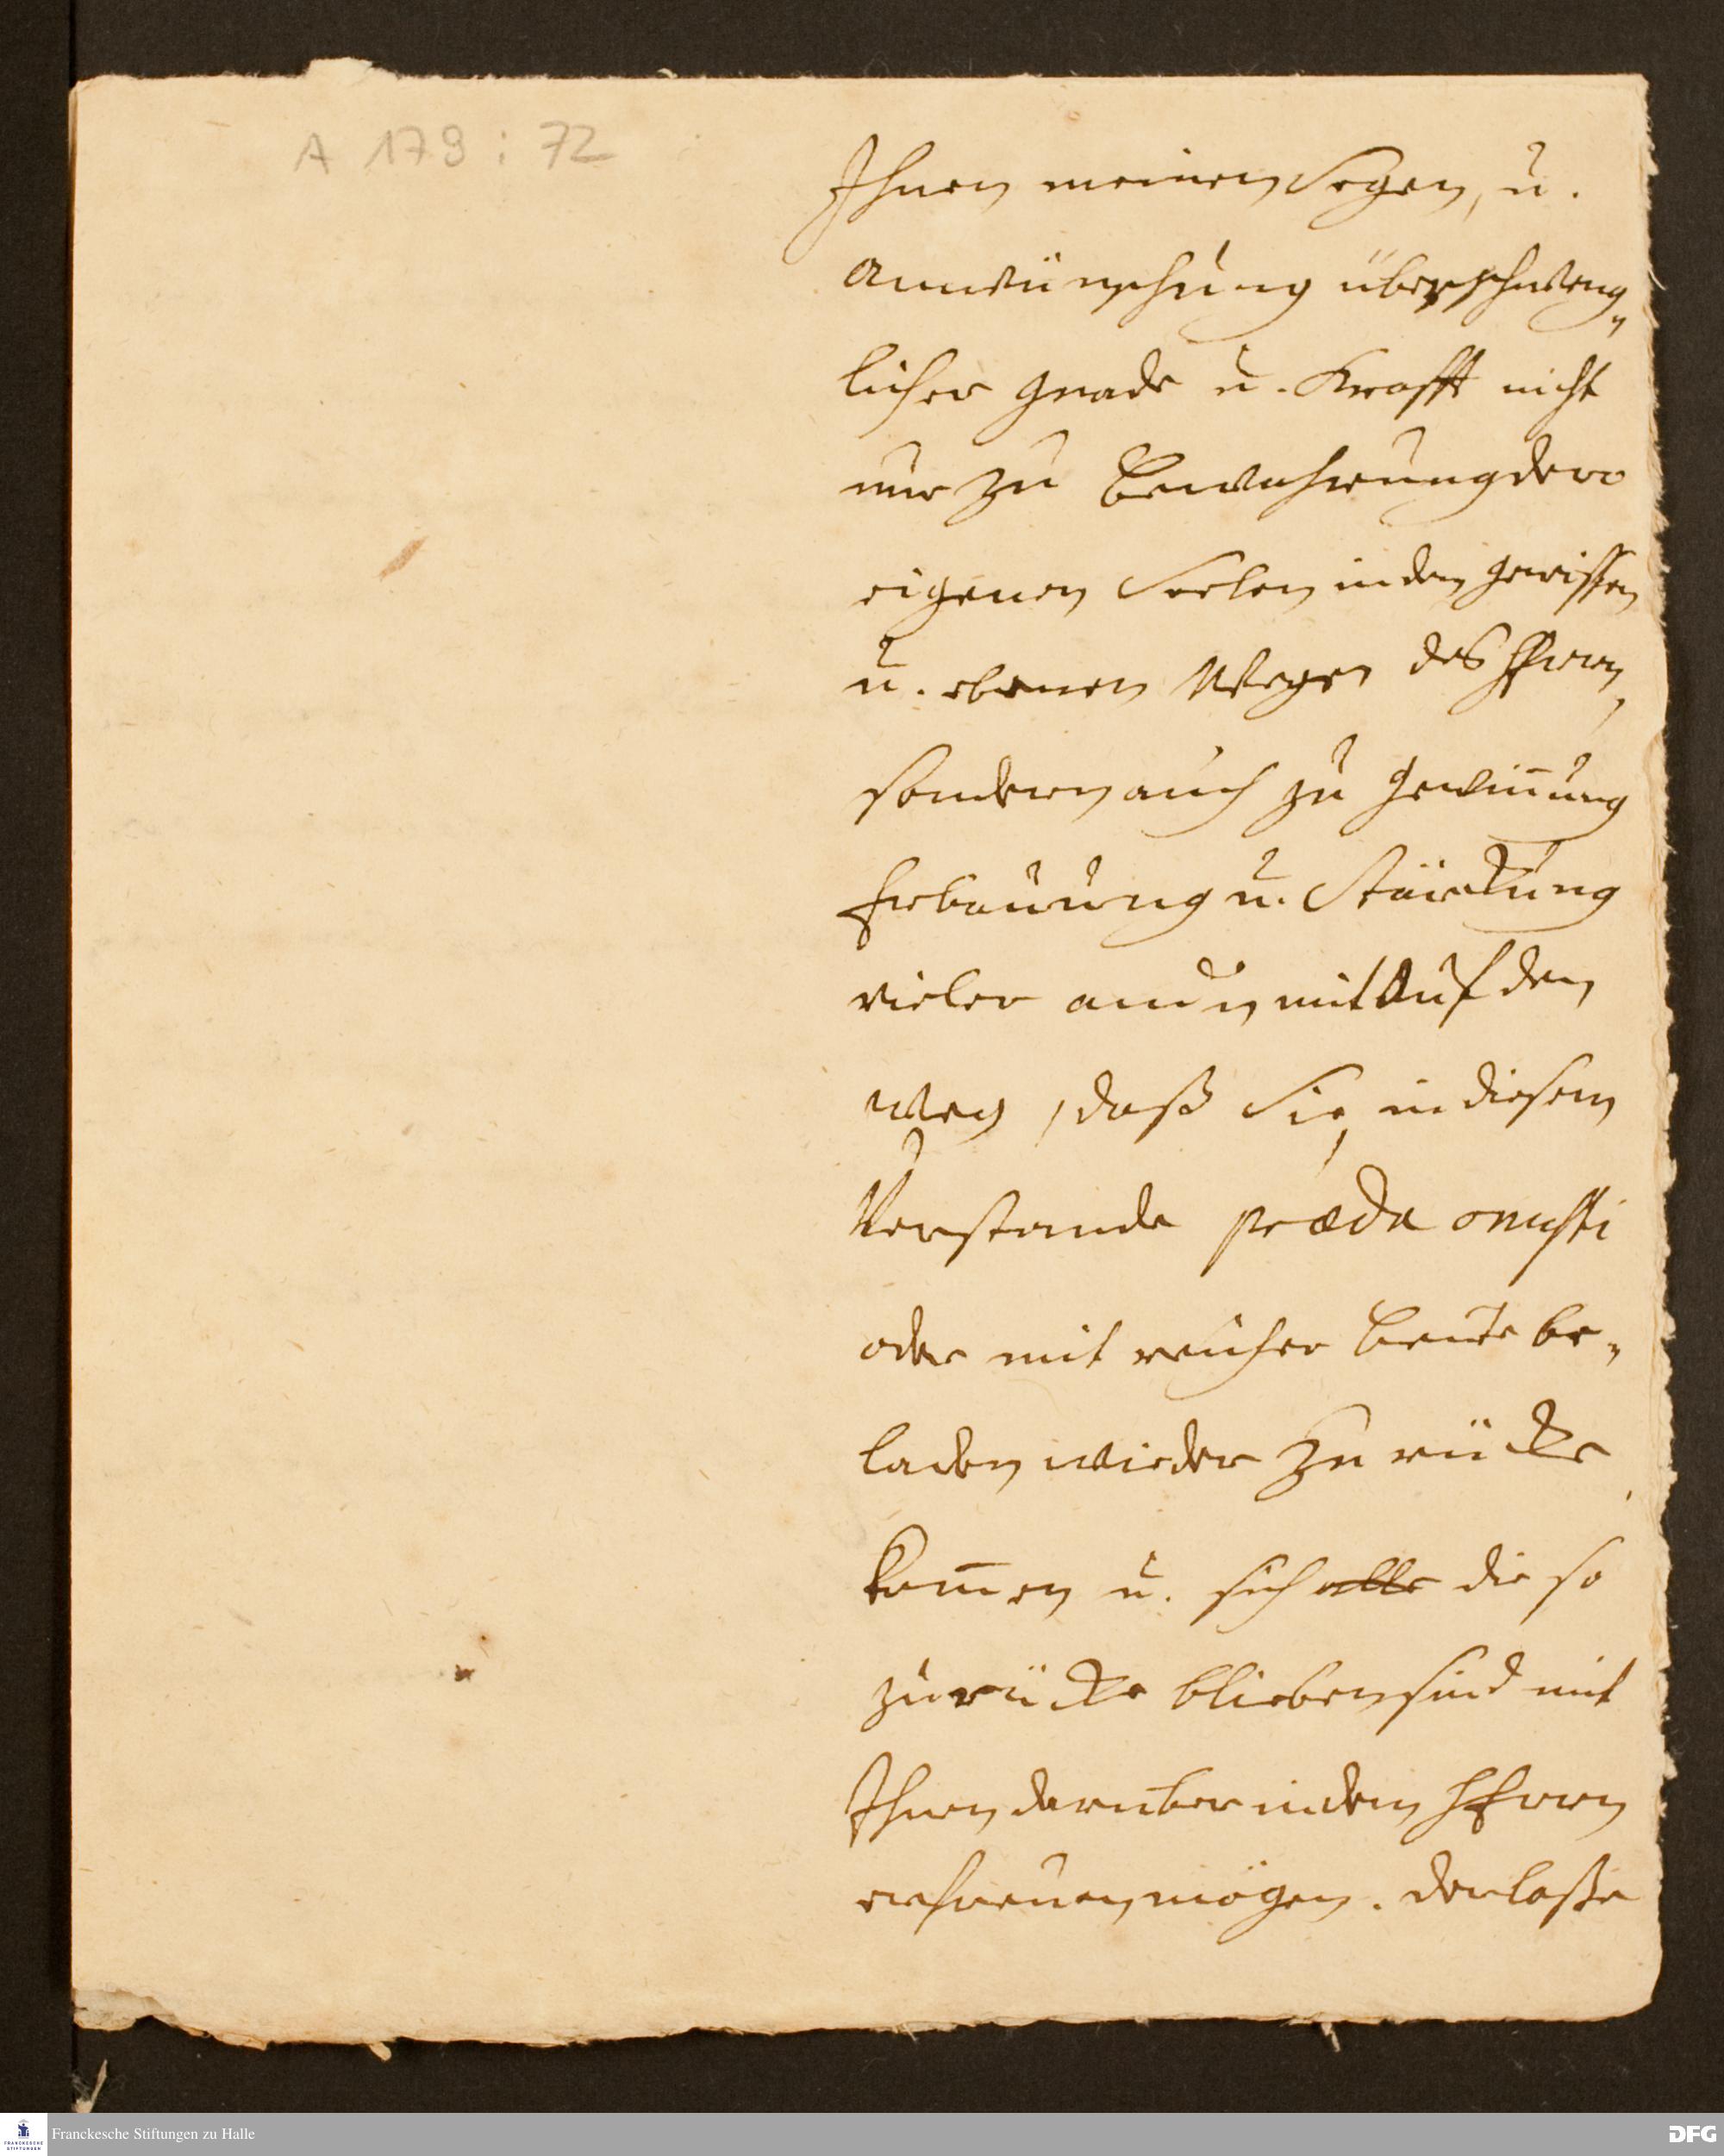 A 179 : 72
Ihnen meinen Segen, u.
anwünschung überschweng„
licher gnade u. Krafft nicht
nur zu Bewahrung dero
eigenen Seelen in den gewissen
u. ebenen Wegen des HErrn,
sondern auch zu gewiñung
Erbauung u. Stärckung
vieler mit auf den
weg, daß Sie, in diesem
Verstande præda onusti
oder mit reicher beute be„
laden wieder zu rücke
kom̃en u. sich alle die so
zurücke blieben sind mit
Ihnen darüber in dem HErrn
erfreuen mögen. Der laße
Franckesche Stiftungen zu Halle
FRANCKESCHE
STIFTUNGEN
DFG